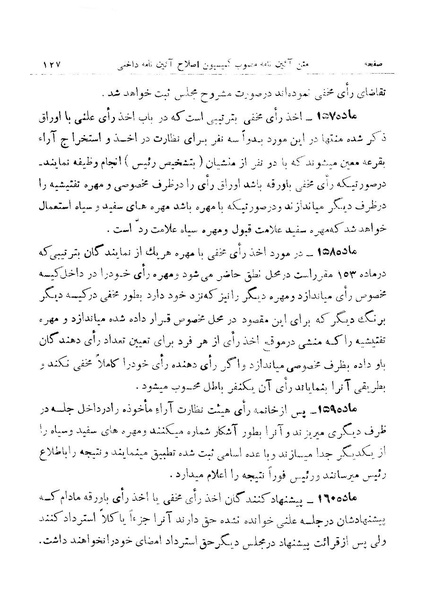 صفحه متن آئین نامه مصوب کمیسیون اصلاح آئین نامه داخلی ۱۲۷
تقاضای رأی مخفی نموده‌اند درصورت مشروح مجلس ثبت خواهد شد.
ماده۱۵۷ ـ اخذ رأی مخفی بترتیبی است که در باب اخذ رأی علنی با اوراق
ذکر شده منتها در این مورد بدواً سه نفر برای نظارت در اخذ و استخراج آراء
بقرعه معین میشوند که با دو نفر از منشیان (بتشخیص رئیس) انجام وظیفه نمایند.
درصورتیکه رأی مخفی باورقه باشد اوراق رأی را درظرف مخصوصی و مهره تفتیشیه را
درظرف دیگر میاندازند ودرصورتیکه با مهره باشد مهره های سفید و سیاه استعمال
خواهد شد که مهره سفید علامت قبول ومهره سیاه علامت ردّ است.
ماده۱۵۸ ـ در مورد اخذ رأی مخفی با مهره هریك از نمایندگان بترتیبی‌که
درماده ۱۵۳ مقرراست درمحل نطق حاضر می‌شود ومهره رأی خودرا در داخل کیسه
مخصوص رأی میاندازد ومهره دیگر را نیز که نزد خود دارد بطور مخفی در کیسه دیگر
برنگ دیگر که برای این مقصود در محل مخصوص قرار داده شده میاندازد و مهره
تفتیشیه را که منشی درموقع اخذ رأی از هر فرد برای تعیین تعداد رأی دهندگان
باو داده بظرف مخصوصی میاندازد واگر رأی دهنده رأی خودرا کاملاً مخفی نکند و
بطریقی آنرا بنمایاند رأی آن یکنفر باطل محسوب میشود.
ماده۱۵۹ـ پس ازخاتمه رأی هیئت نظارت آراء مأخوذه رادرداخل جلسه در
ظرف دیگری میریزند و آنرا بطور آشکار شماره میکنند ومهره های سفید وسیاه را
از یکدیگر جدا میسازند وباعده اسامی ثبت شده تطبیق مینمایند و نتیجه را باطلاع
رئیس میرسانند ورئیس فوراً نتیجه را اعلام میدارد.
ماده۱۶۰ ـ پیشنهادکنندگان اخذ رأی مخفی یا اخذ رأی باورقه مادام که
پیشنهادشان درجلسه علنی خوانده نشده حق دارند آنرا جزءاً یا کلاً استرداد کنند
ولی پس ازقرائت پیشنهاد درمجلس دیگرحق استرداد امضای خودرا نخواهند داشت.